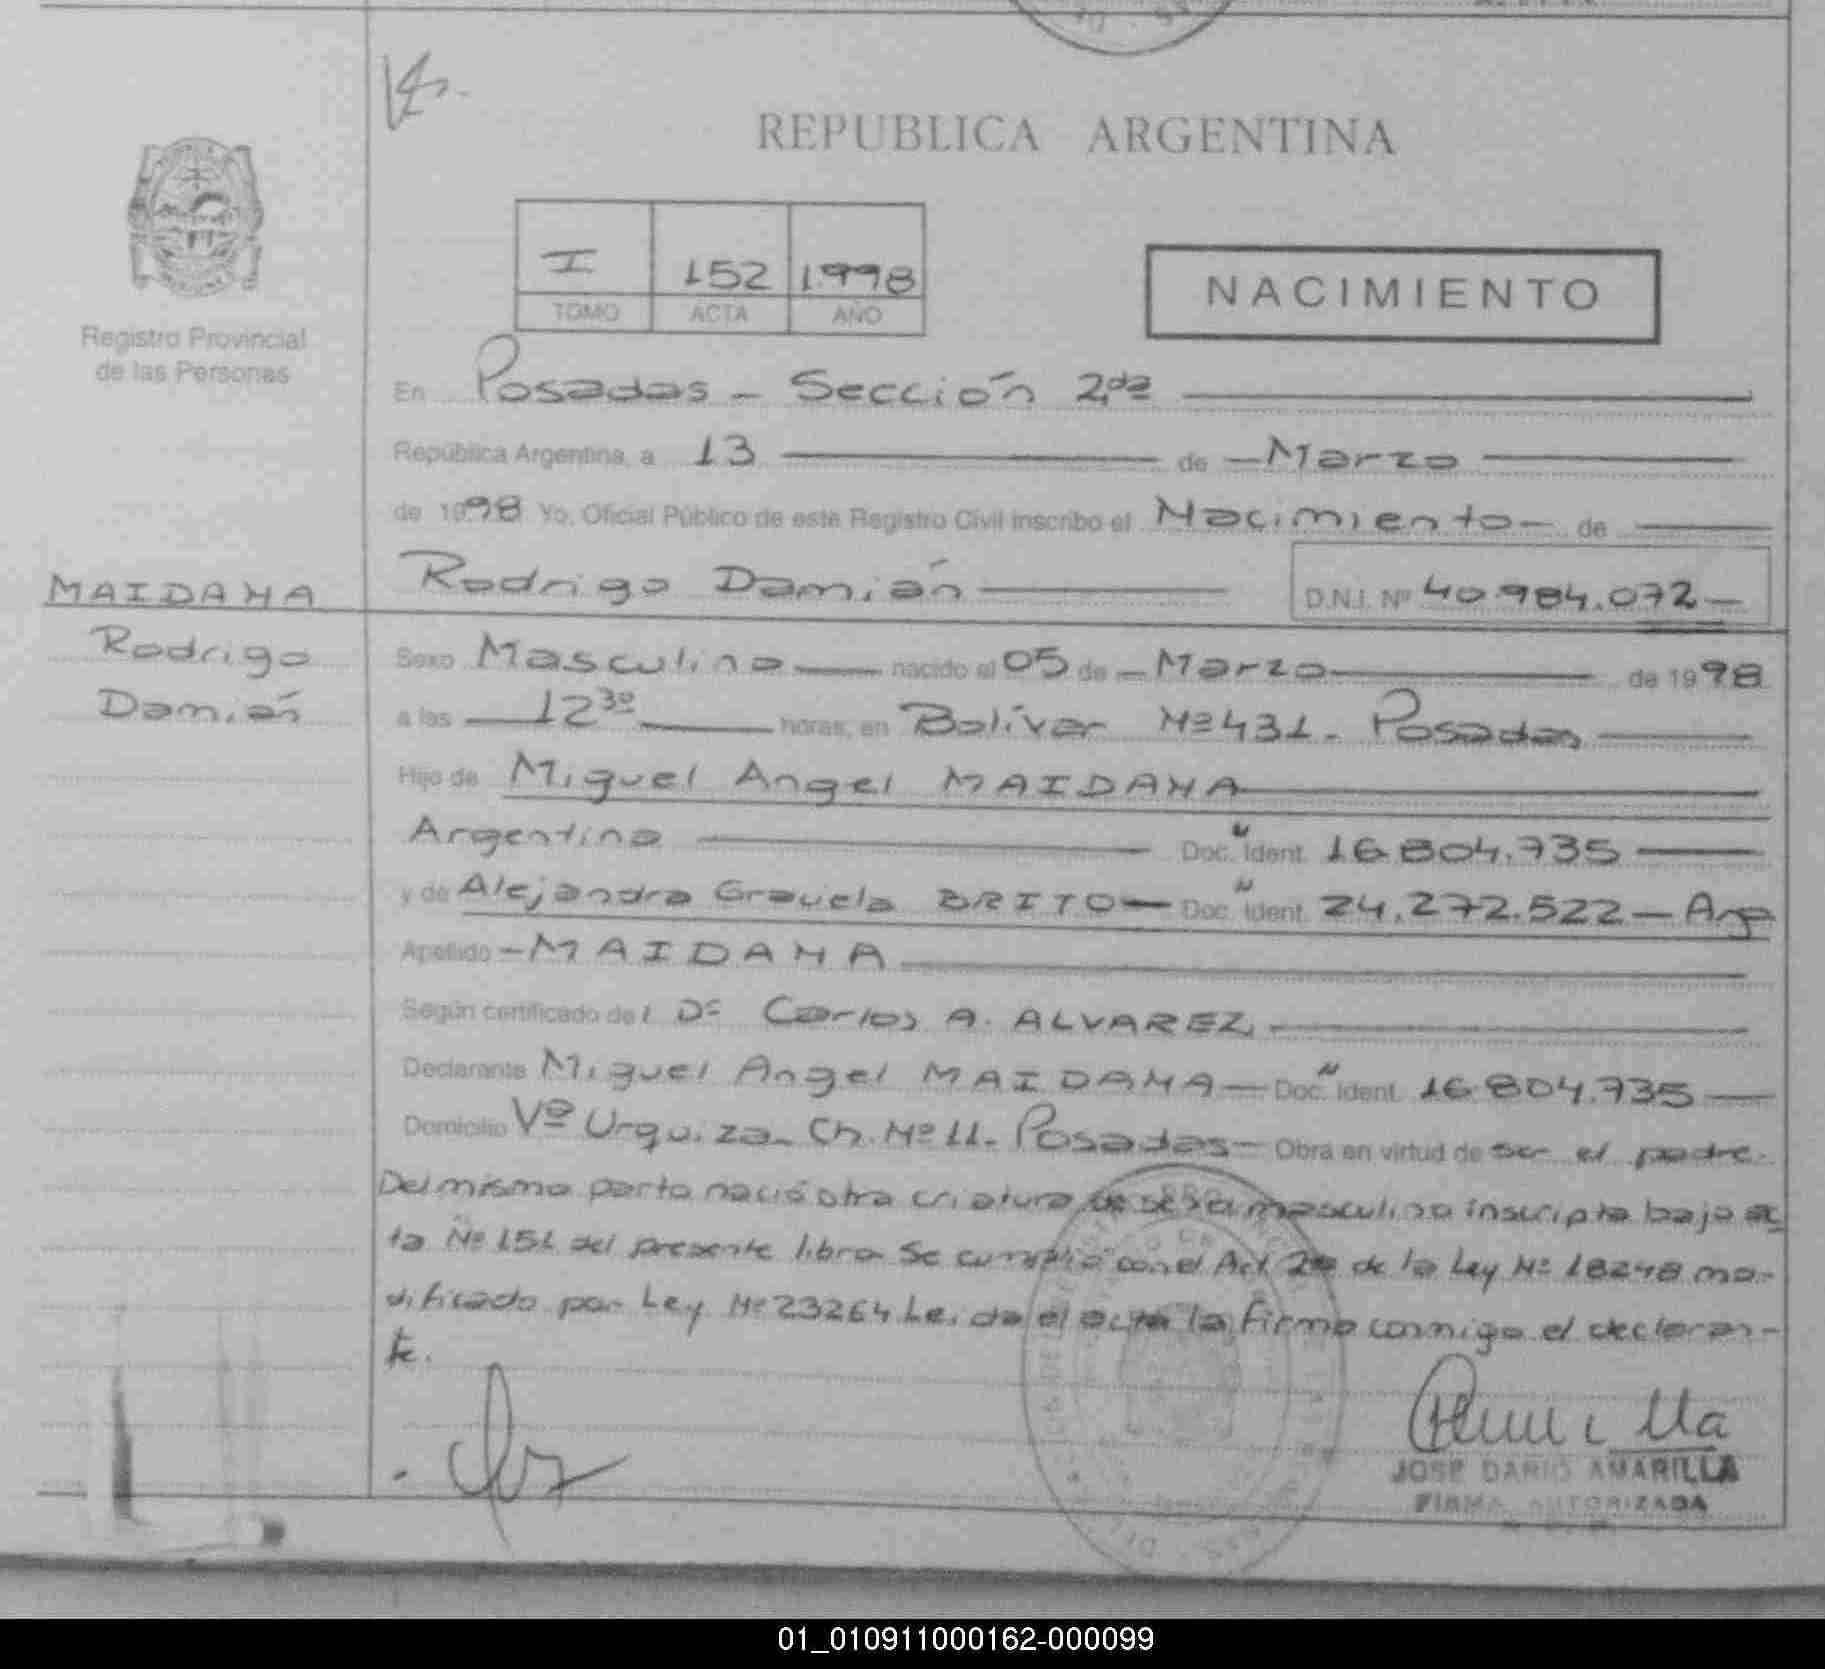 REPUBLICA ARGENTINA
I 152 1.998
TOMO ACTA AÑO
NACIMIENTO
Registro Provincial
de las Personas
En Posadas - Sección 2da
República Argentina, a 13 de - Marzo
de 1998 Yo, Oficial Público de este Registro Civil inscribo el Nacimiento - de
MAIDANA
Rodrigo Damián D.N.I. Nº 40.984.072 -
Rodrigo
Damián
Sexo Masculino nacido el 05 de - Marzo de 1998
a las 12 30 horas, en Bolívar Nº 431 - Posadas
Hijo de Miguel Angel MAIDANA
Argentina Doc. Ident. 16.804.735
y de Alejandra Graciela BRITO - Doc. Ident. 24.272.522 - Arg
Apellido - MAIDANA
Según certificado del Dr Carlos A. ALVAREZ
Declarante Miguel Angel MAIDANA - Doc. Ident. 16.804.735
Domicilio Vº Urquiza - Ch. Nº 11 - Posadas - Obra en virtud de ser el padre.
Del mismo parto nació otra criatura de sexo masculino inscripta bajo ac
ta Nº 151 del presente libro Se cumplió con el Art 2º de la Ley Nº 18248 mo-
dificado por Ley Nº 23264 Leida el acta la firma conmigo el declaran-
te.
JOSE DARIO AMARILLA
FIRMA AUTORIZADA
01_010911000162-000099